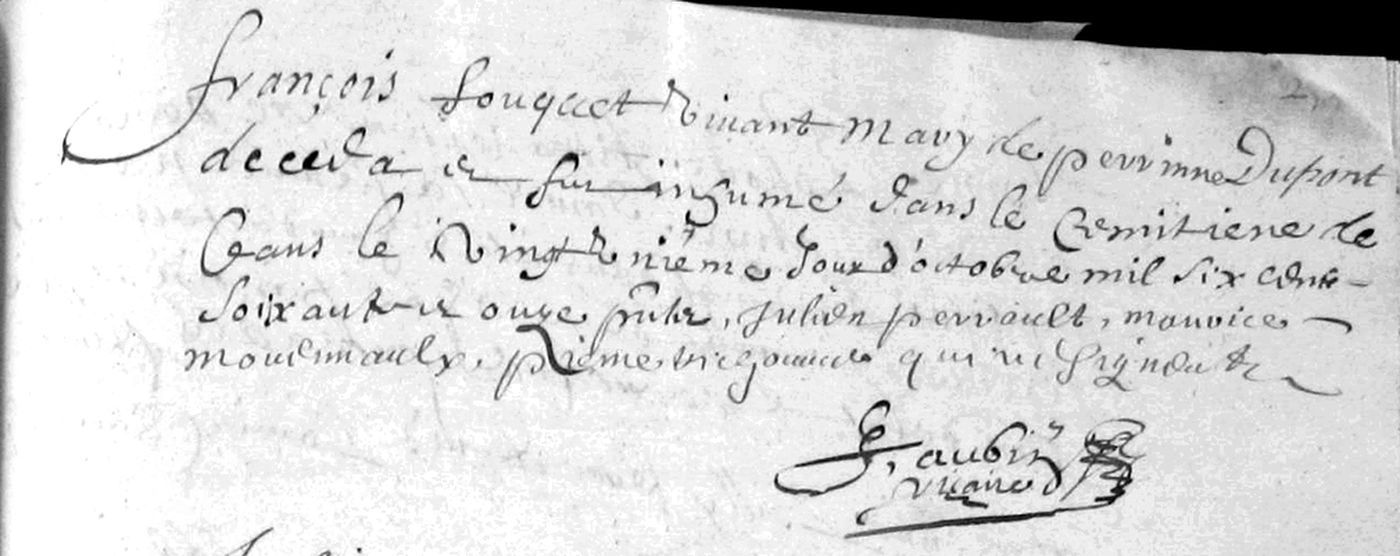 françois fouquet vivant mary de perrinne Dupont
deceda et fut inhumé dans le Cemitiere de
Ceans le vingt nième Jour d'octobre mil six cent
soixante et onze pñts, Julien perrault, mauvice
qui ne signent
J, aubin
vicaire